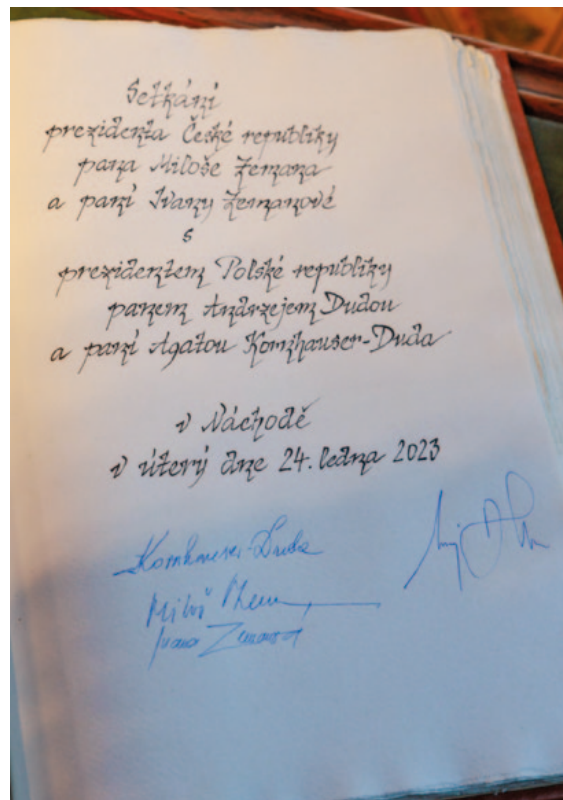 Setkání
prezidenta České republiky
pana Miloše Zemana
a paní Ivany Zemanové
s
prezidentem Polské republiky
panem Andrzejem Dudou
a paní Agatou Kornhauser-Duda
v Náchodě
v úterý dne 24. ledna 2023
Kornhauser-Duda
Miloš Zeman
Ivana Zemanová